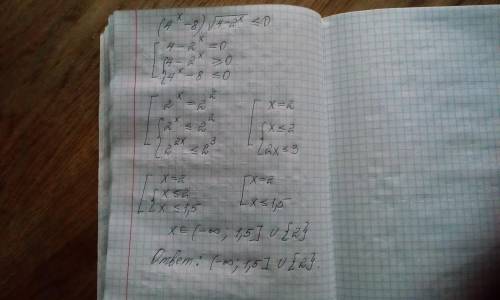 (4^x - 8) √(4-2^x) ≤ 0
[ 4 - 2^x = 0
{ 4 - 2^x ≥ 0
{ 4^x - 8 ≤ 0
[ 2^x = 2^2
{ 2^x ≤ 2^2
{ 2^2x ≤ 2^3
[ x = 2
{ x ≤ 2
{ 2x ≤ 3
[ x = 2
{ x ≤ 2
{ x ≤ 1,5
[ x = 2
x ≤ 1,5
x ∈ (-∞; 1,5] ∪ {2}
Ответ: (-∞; 1,5] ∪ {2}